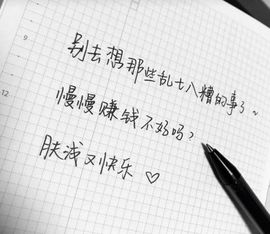 9
别去想那些乱七八糟的事了~
12
慢慢赚钱不好吗?
肤浅又快乐♡